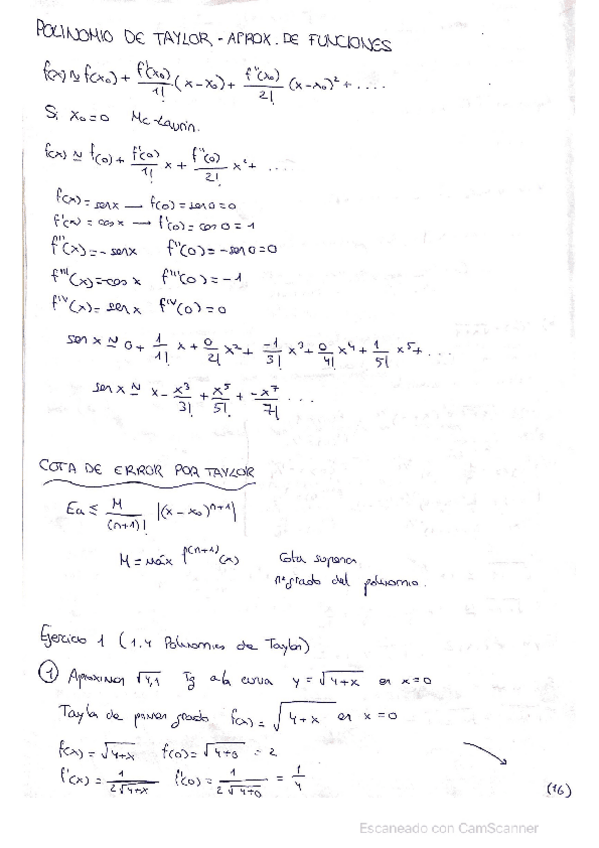 POLINOMIO DE TAYLOR - APROX. DE FUNCIONES
f(x) ≃ f(x₀) + f'(x₀)/1! (x-x₀) + f''(x₀)/2! (x-x₀)² + ....
Si x₀=0 Mc-Laurin.
f(x) ≃ f(0) + f'(0)/1! x + f''(0)/2! x² + ...
f(x) = sen x — f(0) = sen 0 = 0
f'(x) = cos x — f'(0) = cos 0 = 1
f''(x) = - sen x f''(0) = - sen 0 = 0
f'''(x) = -cos x f'''(0) = -1
f^IV(x) = sen x f^IV(0) = 0
sen x ≃ 0 + 1/1! x + 0/2! x² + -1/3! x³ + 0/4! x⁴ + 1/5! x⁵ + ...
sen x ≃ x - x³/3! + x⁵/5! + -x⁷/7! ...
COTA DE ERROR POR TAYLOR
Ea ≤ M/(n+1)! |(x-x₀)^(n+1)|
M = máx f^(n+1)(x) Cota superior
n = grado del polinomio.
Ejercicio 1 (1.4 Polinomios de Taylor)
① Aproximar √4,1 Tg a la curva y = √4+x en x=0
Taylor de primer grado f(x) = √4+x en x=0
f(x) = √4+x f(0) = √4+0 = 2
f'(x) = 1/2√4+x f'(0) = 1/2√4+0 = 1/4
(16)
Escaneado con CamScanner